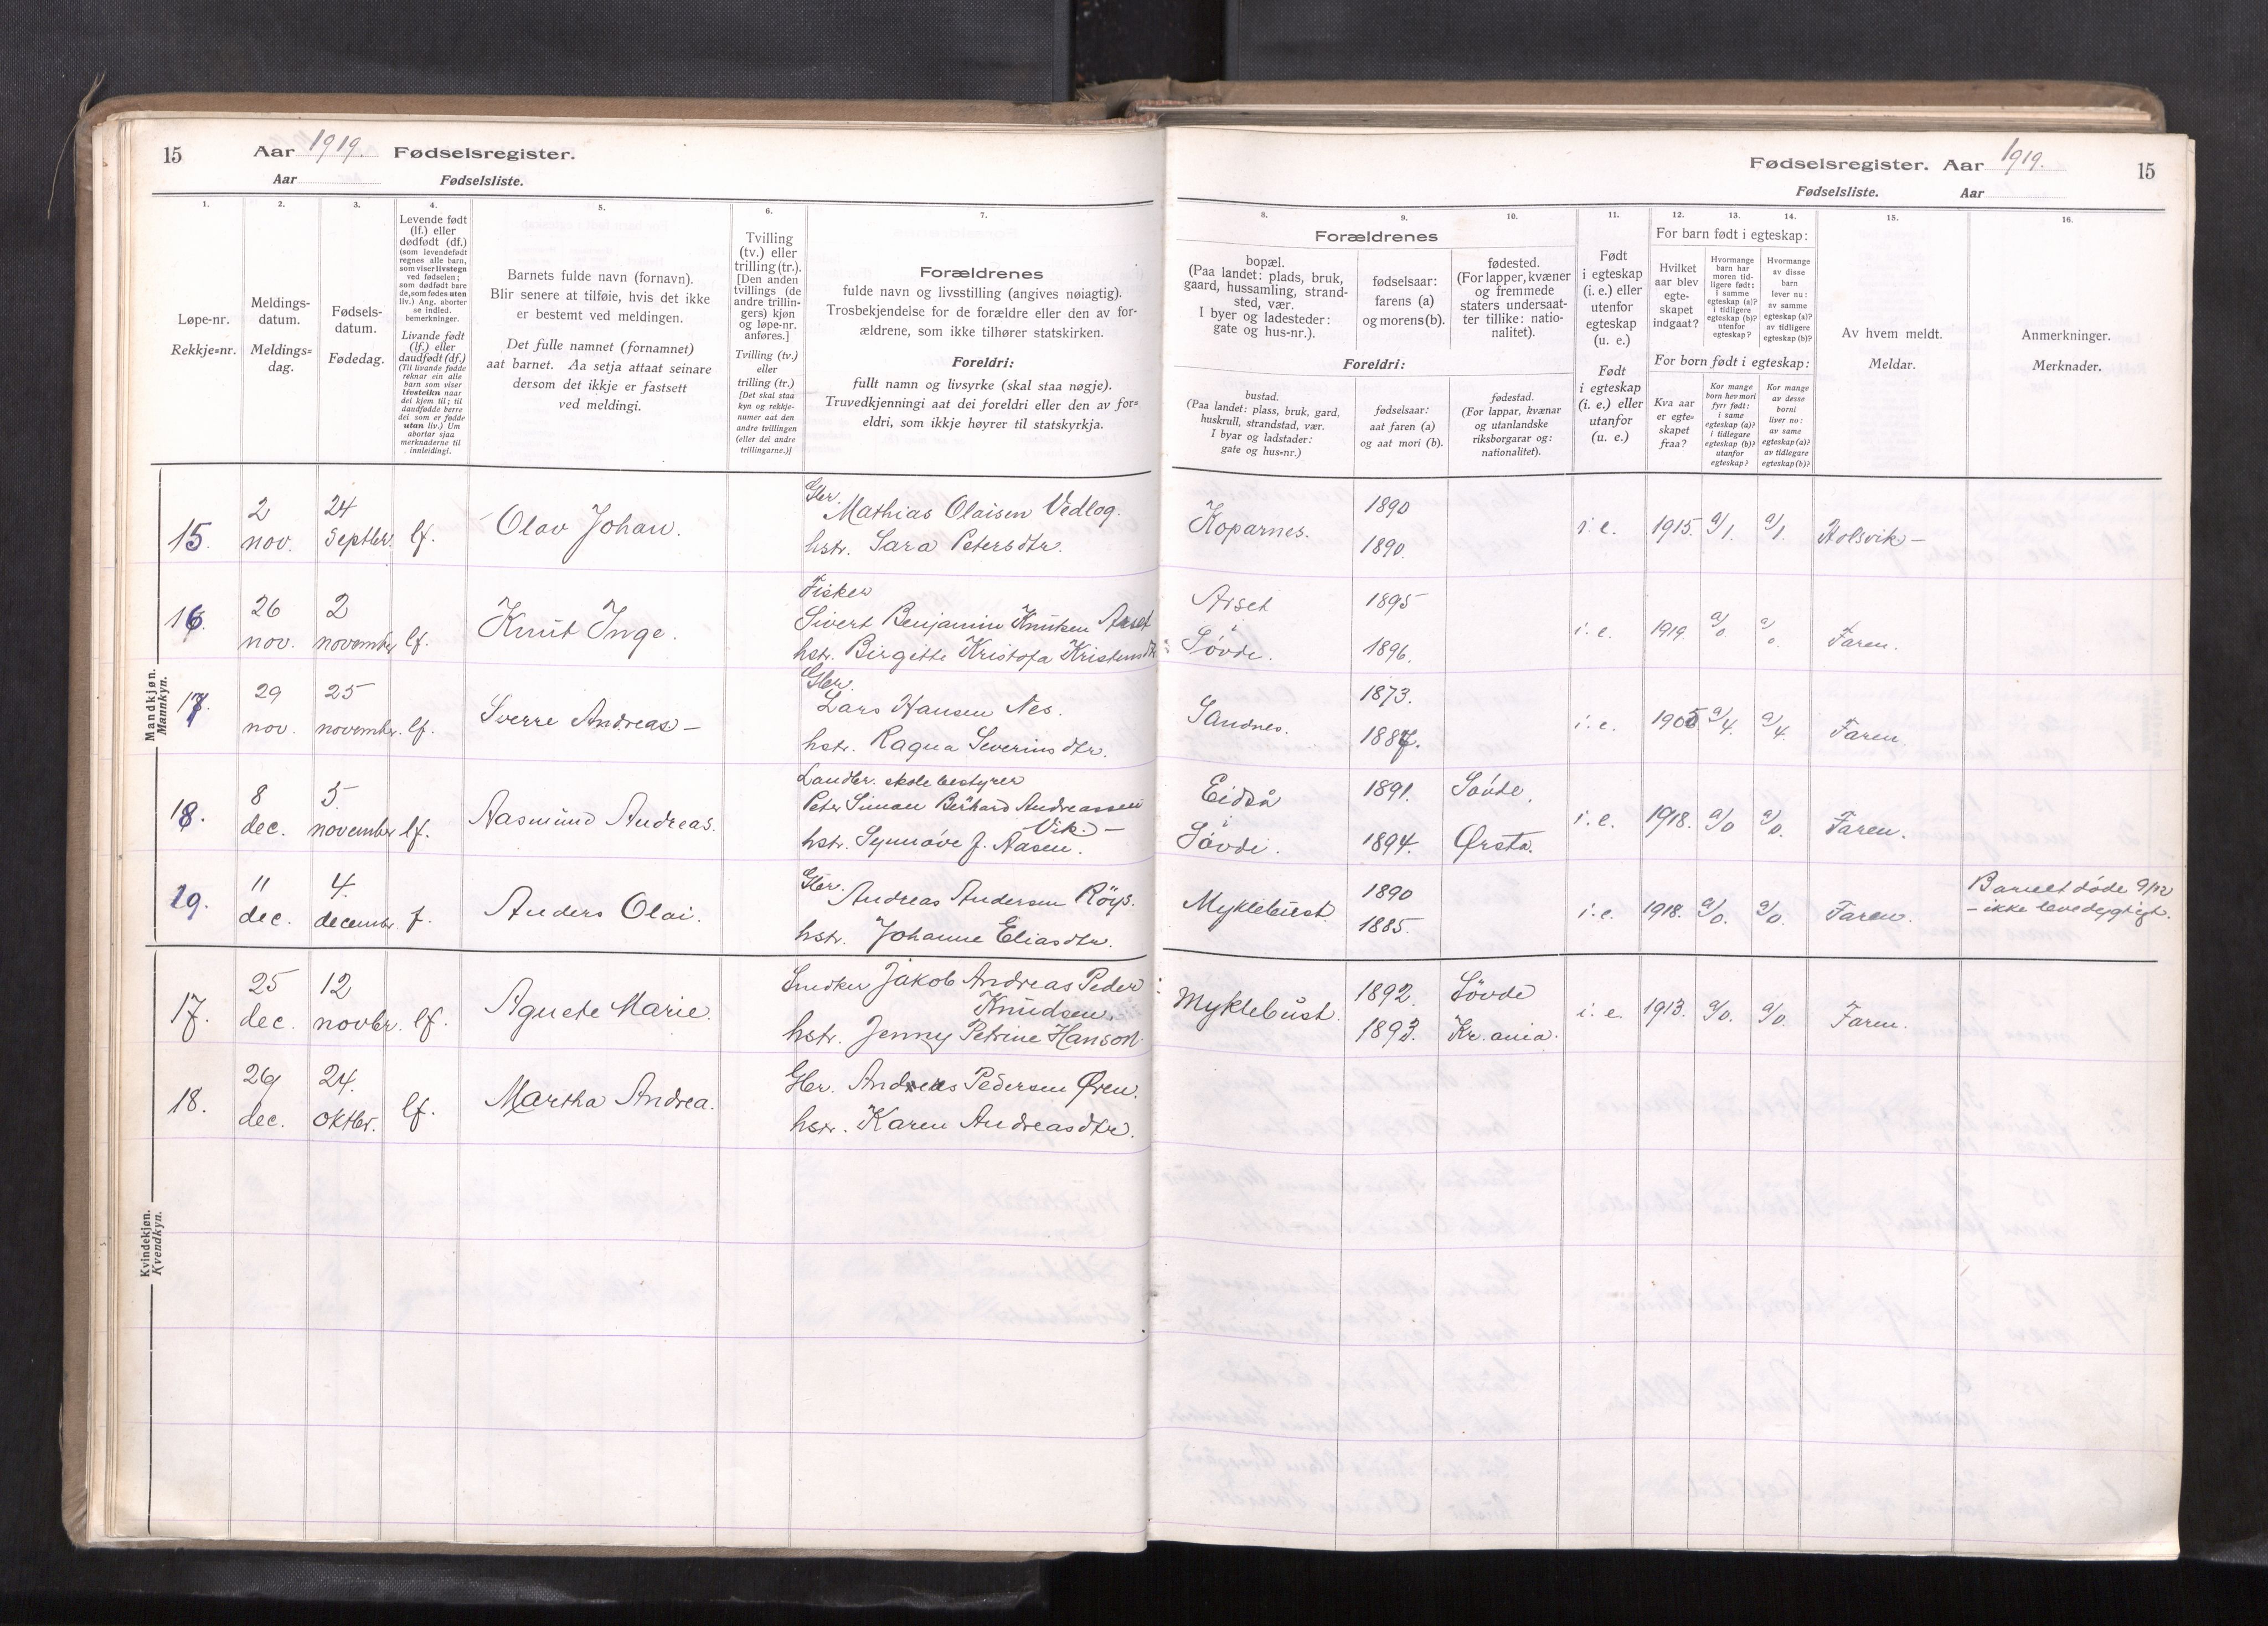 15 Aar 1919. Fødselsregister.
Aar Fødselsliste.
1.
2.
3.
4.
5.
6.
7.
Løpe-nr.
Rekkje=nr.
Meldings-
datum.
Meldings=
dag.
Fødsels-
datum.
Fødedag.
Levende født
(lf.) eller
dødfødt (df.)
(som levendefødt
regnes alle barn,
som viser livstegn
ved fødselen;
som dødfødt bare
de, som fødes uten
liv.) Ang. aborter
se indled.
bemerkninger.
Livande født
(lf.) eller
daudfødt (df.)
(Til livande fødde
reknar ein alle
barn som viser
livsteikn naar
dei kjem til; til
daudfødde berre
dei som er fødde
utan liv.) Um
abortar sjaa
merknaderne til
innleidingi.
Barnets fulde navn (fornavn).
Blir senere at tilføie, hvis det ikke
er bestemt ved meldingen.
Det fulle namnet (fornamnet)
aat barnet. Aa setja attaat seinare
dersom det ikkje er fastsett
ved meldingi.
Tvilling
(tv.) eller
trilling (tr.).
[Den anden
tvillings (de
andre trillin-
gers) kjøn
og løpe-nr.
anføres.]
Tvilling (tv.)
eller
trilling (tr.)
[Det skal staa
kyn og rekkje-
numer aat den
andre tvillingen
(eller dei andre
trillingarne.)]
Forældrenes
fulde navn og livsstilling (angives nøiagtig).
Trosbekjendelse for de forældre eller den av for-
ældrene, som ikke tilhører statskirken.
Foreldri:
fullt namn og livsyrke (skal staa nøgje).
Truvedkjenningi aat dei foreldri eller den av for=
eldri, som ikkje høyrer til statskyrkja.
Mandkjøn.
Mannkyn.
15. 2 nov. 24 Septbr. lf. Olav Johan.
Gbr. Mathias Olaisen Vedlog.
hstr. Sara Petersdtr.
16. 26 nov. 2 november lf. Knut Inge.
Fisker
Sivert Benjamin Knutsen Arset
hstr. Birgitte Kristofa Kristensdtr
17. 29 nov. 25 novembr. lf. Sverre Andreas –
Gbr.
Lars Hansen Nes.
hstr. Ragna Severinsdtr.
18. 8 dec. 5. november lf. Aasmund Andreas.
Landbr. skolebestyrer
Peter Simon Berhard Andreassen
Vik. –
hstr. Synnøve J. Aasen.
19. 11 dec. 4. decembr. f. Anders Olai.
Gbr. Andreas Andersen Röys.
hstr. Johanne Eliasdtr.
Kvindekjøn.
Kvendkyn.
17. 25 dec. 12 novbr. lf. Agnete Marie.
Snedker Jakob Andreas Peder
Knudsen.
hstr. Jenny Petrine Hanson.
18. 29 dec. 24. oktbr. lf. Martha Andrea.
Gbr. Andreas Pedersen Øren.
hstr. Karen Andreasdtr.
Fødselsregister. Aar 1919. 15
Fødselsliste. Aar
8.
9.
10.
11.
12.
13.
14.
15.
16.
Forældrenes
bopæl.
(Paa landet: plads, bruk,
gaard, hussamling, strand-
sted, vær.
I byer og ladesteder:
gate og hus-nr.).
fødselsaar:
farens (a)
og morens (b).
fødested.
(For lapper, kvæner
og fremmede
staters undersaat-
ter tillike: natio-
nalitet).
Foreldri:
bustad.
(Paa landet: plass, bruk, gard,
huskrull, strandstad, vær.
I byar og ladstader:
gate og hus=nr.)
fødselsaar:
aat faren (a)
og aat mori (b).
fødestad.
(For lappar, kvænar
og utanlandske
riksborgarar og:
nationalitet).
Født
i egteskap
(i. e.) eller
utenfor
egteskap
(u. e.)
Født
i egteskap
(i. e.) eller
utanfor
(u. e.)
For barn født i egteskap:
Hvilket
aar blev
egte-
skapet
indgaat?
Hvormange
barn har
moren tid-
ligere født:
i samme
egteskap (a)?
i tidligere
egteskap (b)?
utenfor
egteskap?
Hvormange
av disse
barn
lever nu:
av samme
egteskap (a)?
av tidligere
egteskap (b)?
For born født i egteskap:
Kva aar
er egte=
skapet
fraa?
Kor mange
born hev mori
fyrr født:
i same
egteskap (a)?
i tidlegare
egteskap (b)?
utanfor
egteskap?
Kor mange
av desse
borni
liver no:
av same
egteskap (a)?
av tidlegare
egteskap (b)?
Av hvem meldt.
Meldar.
Anmerkninger.
Merknader.
Koparnes. 1890 1890. i. e. 1915. a/1. a/1. Holsvik –
Arset
Søvde. 1895 1896. i. e. 1919. a/0 a/0 Faren.
Sandnes. 1873. 1887. i. e. 1905 a/4. a/4. Faren.
Eidså
Søvde. 1891. Søvde. 1894. Ørsta. i. e. 1918. a/0 a/0. Faren.
Myklebust. 1890 1885. i. e. 1918. a/0. a/0. Faren. Barnet døde 9/12
– ikke levedygtigt.
Myklebust. 1892. Søvde 1893. Kr.ania. i. e. 1913. a/0. a/0. Faren.